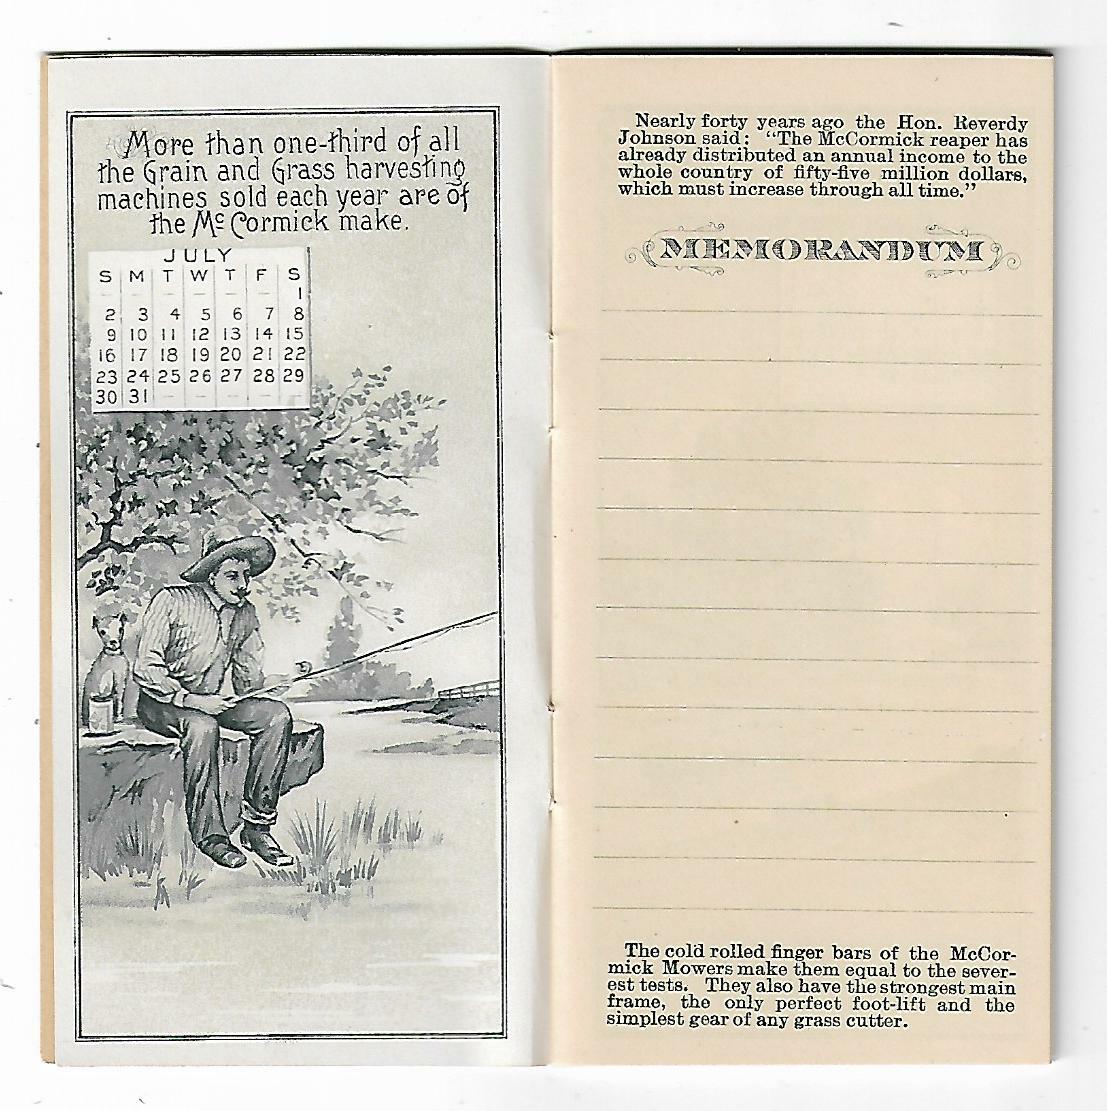 More than one-third of all
the Grain and Grass harvesting
machines sold each year are of
the McCormick make.
JULY
S M T W T F S
1
2 3 4 5 6 7 8
9 10 11 12 13 14 15
16 17 18 19 20 21 22
23 24 25 26 27 28 29
30 31
Nearly forty years ago the Hon. Reverdy
Johnson said: "The McCormick reaper has
already distributed an annual income to the
whole country of fifty-five million dollars,
which must increase through all time."
MEMORANDUM
The cold rolled finger bars of the McCor-
mick Mowers make them equal to the sever-
est tests. They also have the strongest main
frame, the only perfect foot-lift and the
simplest gear of any grass cutter.